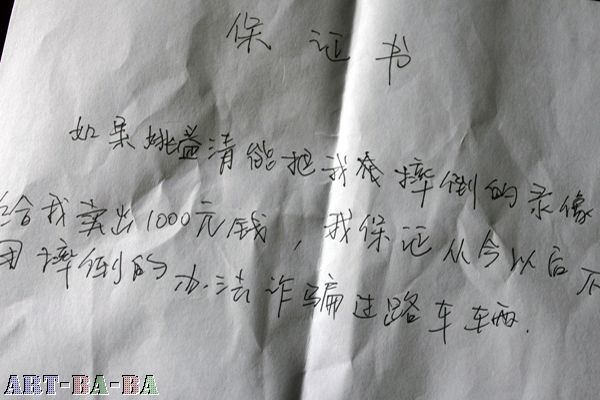 保证书
如果姚益清能把我残摔倒的录像
给我卖出1000元钱，我保证从今以后不
用摔倒的办法诈骗过路车辆.
ART-BA-BA